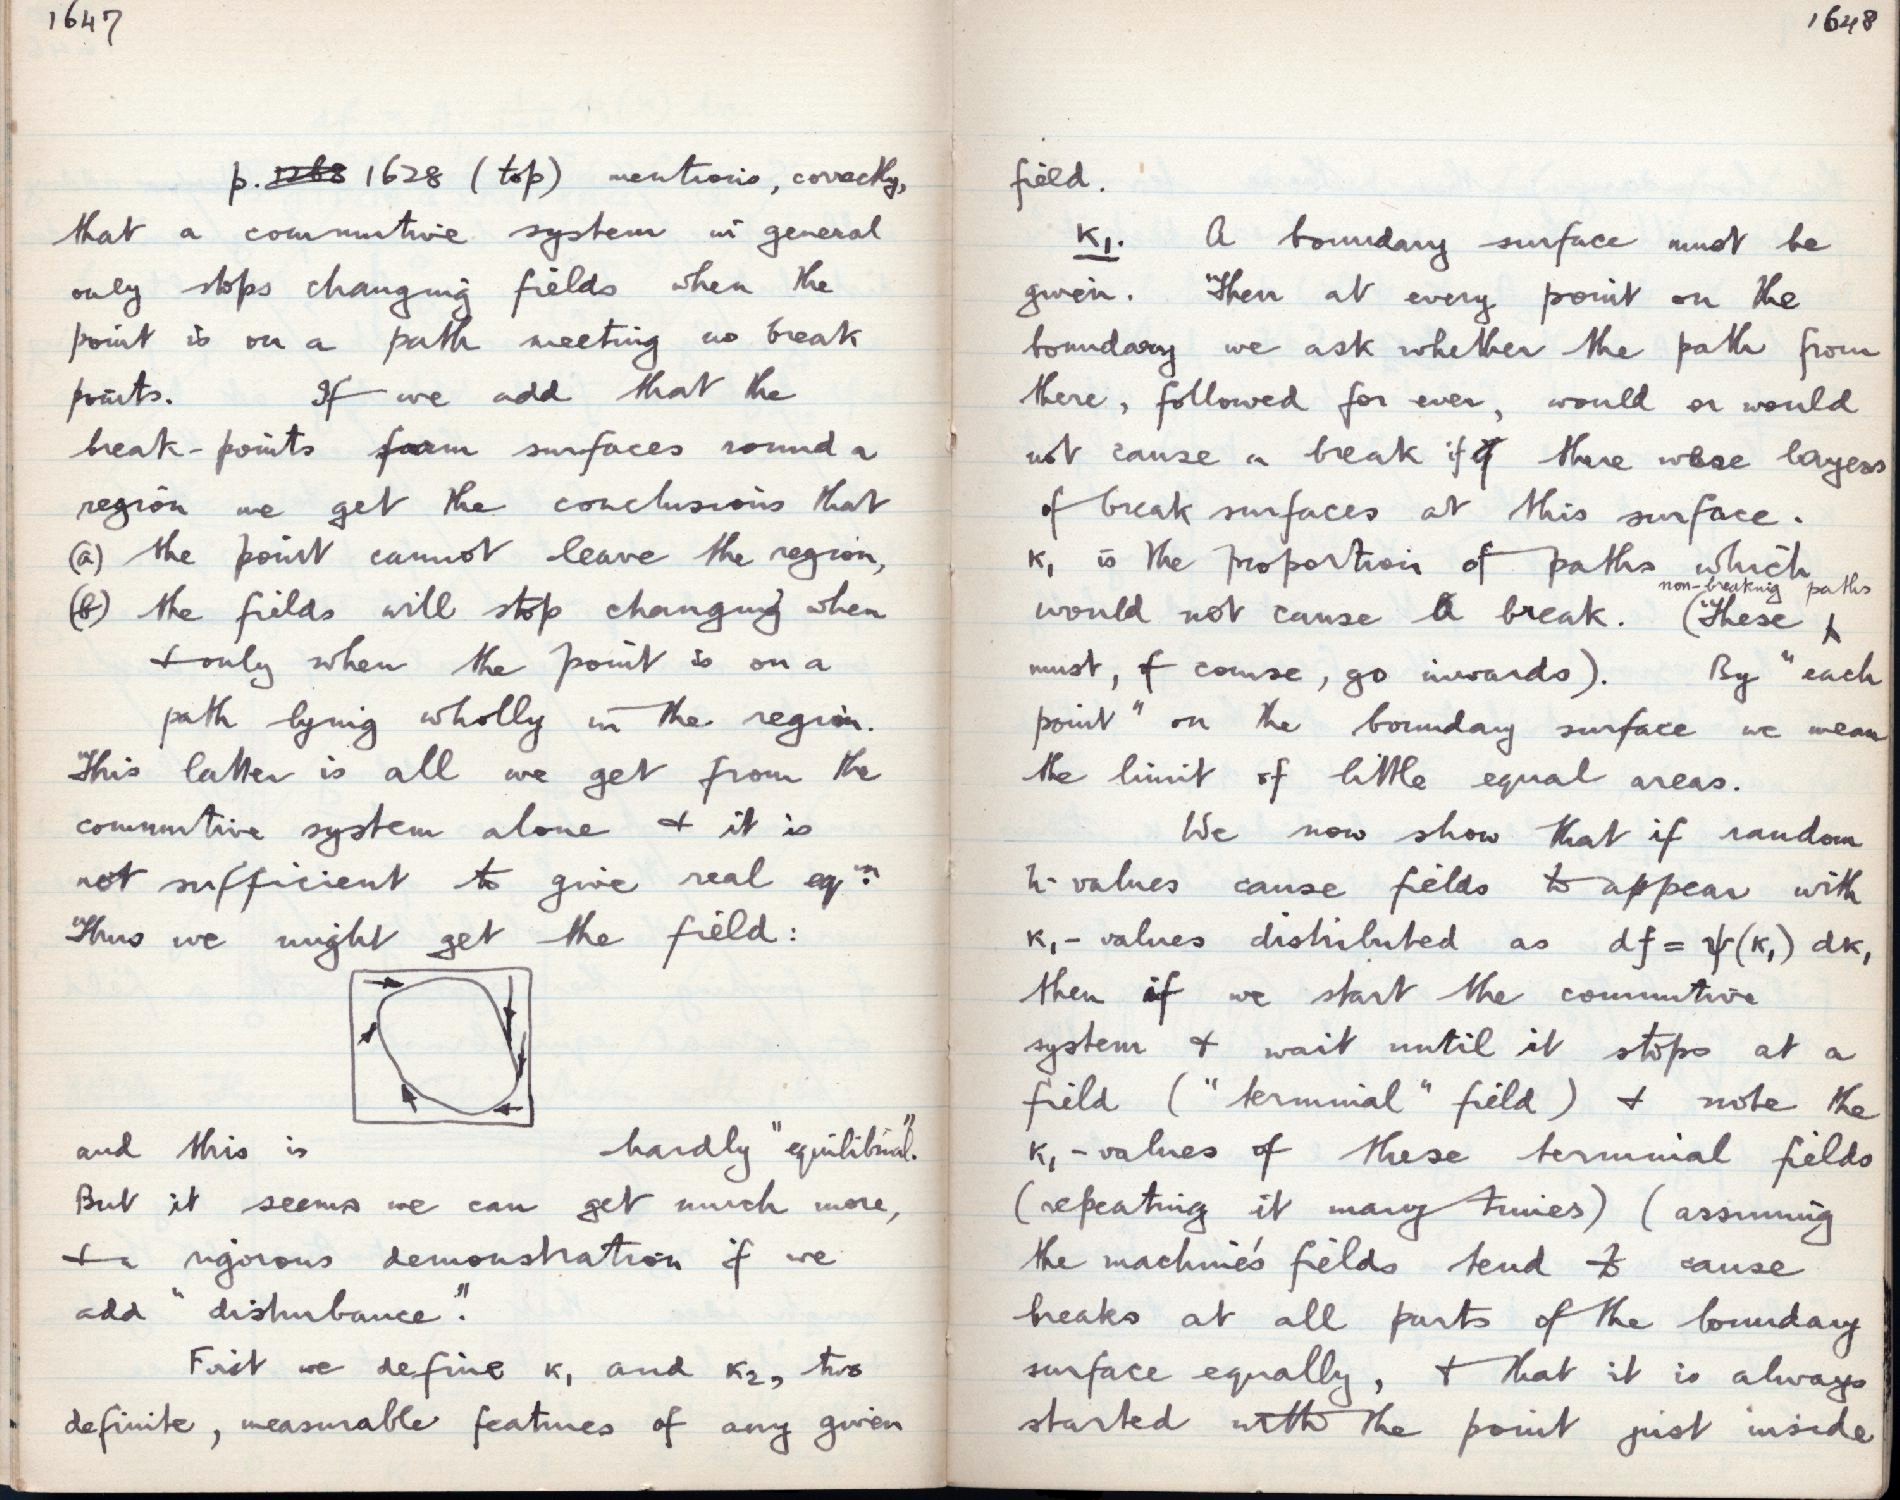 1647
p. 1268 1628 (top) mentions, correctly,
that a commutive system in general
only stops changing fields when the
point is on a path meeting no break
points. If we add that the
break-points form surfaces round a
region we get the conclusions that
(a) the point cannot leave the region,
(b) the fields will stop changing when
& only when the point is on a
path lying wholly in the region.
This latter is all we get from the
commutive system alone & it is
not sufficient to give real eqm.
Thus we might get the field:
and this is hardly "equilibrial".
But it seems we can get much more,
& a rigorous demonstration if we
add "disturbance".
First we define κ₁ and κ₂, two
definite, measurable features of any given
1648
field.
κ₁. A boundary surface must be
given. Then at every point on the
boundary we ask whether the path from
there, followed for ever, would or would
not cause a break if there were layers
of break surfaces at this surface.
κ₁ is the proportion of paths which
non-breaking paths
would not cause a break. (These
must, of course, go inwards). By "each
point" on the boundary surface we mean
the limit of little equal areas.
We now show that if random
h-values cause fields to appear with
κ₁-values distributed as df = ψ(κ₁) dκ₁
then if we start the commutive
system & wait until it stops at a
field ("terminal" field) & note the
κ₁-values of these terminal fields
(repeating it many times) (assuming
the machine's fields tend to cause
breaks at all parts of the boundary
surface equally, & that it is always
started with the point just inside